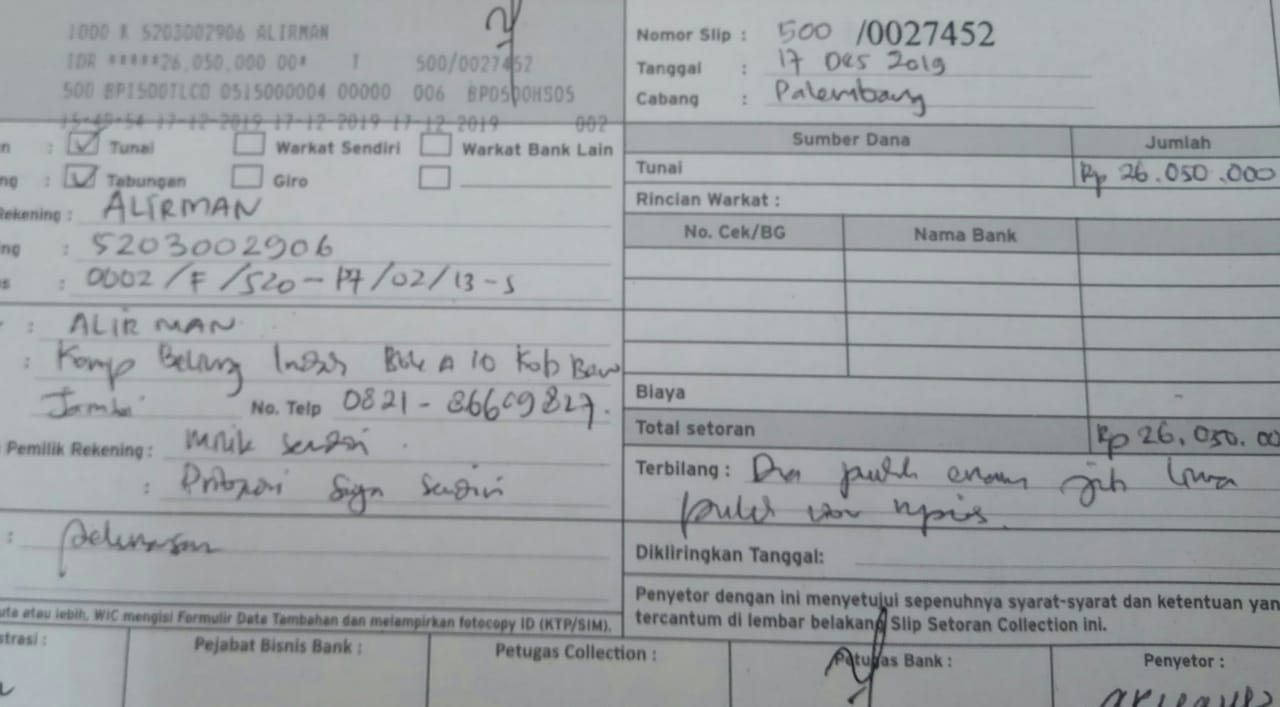 1000 K 5203002906 ALIRMAN
IDR *****26,050,000 00* T 500/0027452
500 BPI500TLC0 0515000004 00000 006 BPD500H505
15-49-54 17-12-2019 17-12-2019 17-12-2019 002
n : Tunai Warkat Sendiri Warkat Bank Lain
ng : Tabungan Giro
Rekening : ALIRMAN
ng : 5203002906
s : 0002/F/520-17/02/13-S
: ALIRMAN
: Komp Belang A 10 Kab
Jambi No. Telp 0821-86609827.
Pemilik Rekening : Milik sendiri
: Pribadi Saya Sendiri
: pelunasan
uta atau lebih, WIC mengisi Formulir Data Tambahan dan melampirkan fotocopy ID (KTP/SIM).
strasi :
Pejabat Bisnis Bank :
Petugas Collection :
Nomor Slip : 500 /0027452
Tanggal : 17 Des 2019
Cabang : Palembang
Sumber Dana Jumlah
Tunai Rp 26.050.000
Rincian Warkat :
No. Cek/BG Nama Bank
Biaya -
Total setoran Rp 26.050.00
Terbilang : Dua puluh enam jt lima
puluh ribu rupiah.
Dikliringkan Tanggal:
Penyetor dengan ini menyetujui sepenuhnya syarat-syarat dan ketentuan yan
tercantum di lembar belakang Slip Setoran Collection ini.
Petugas Bank :
Penyetor :